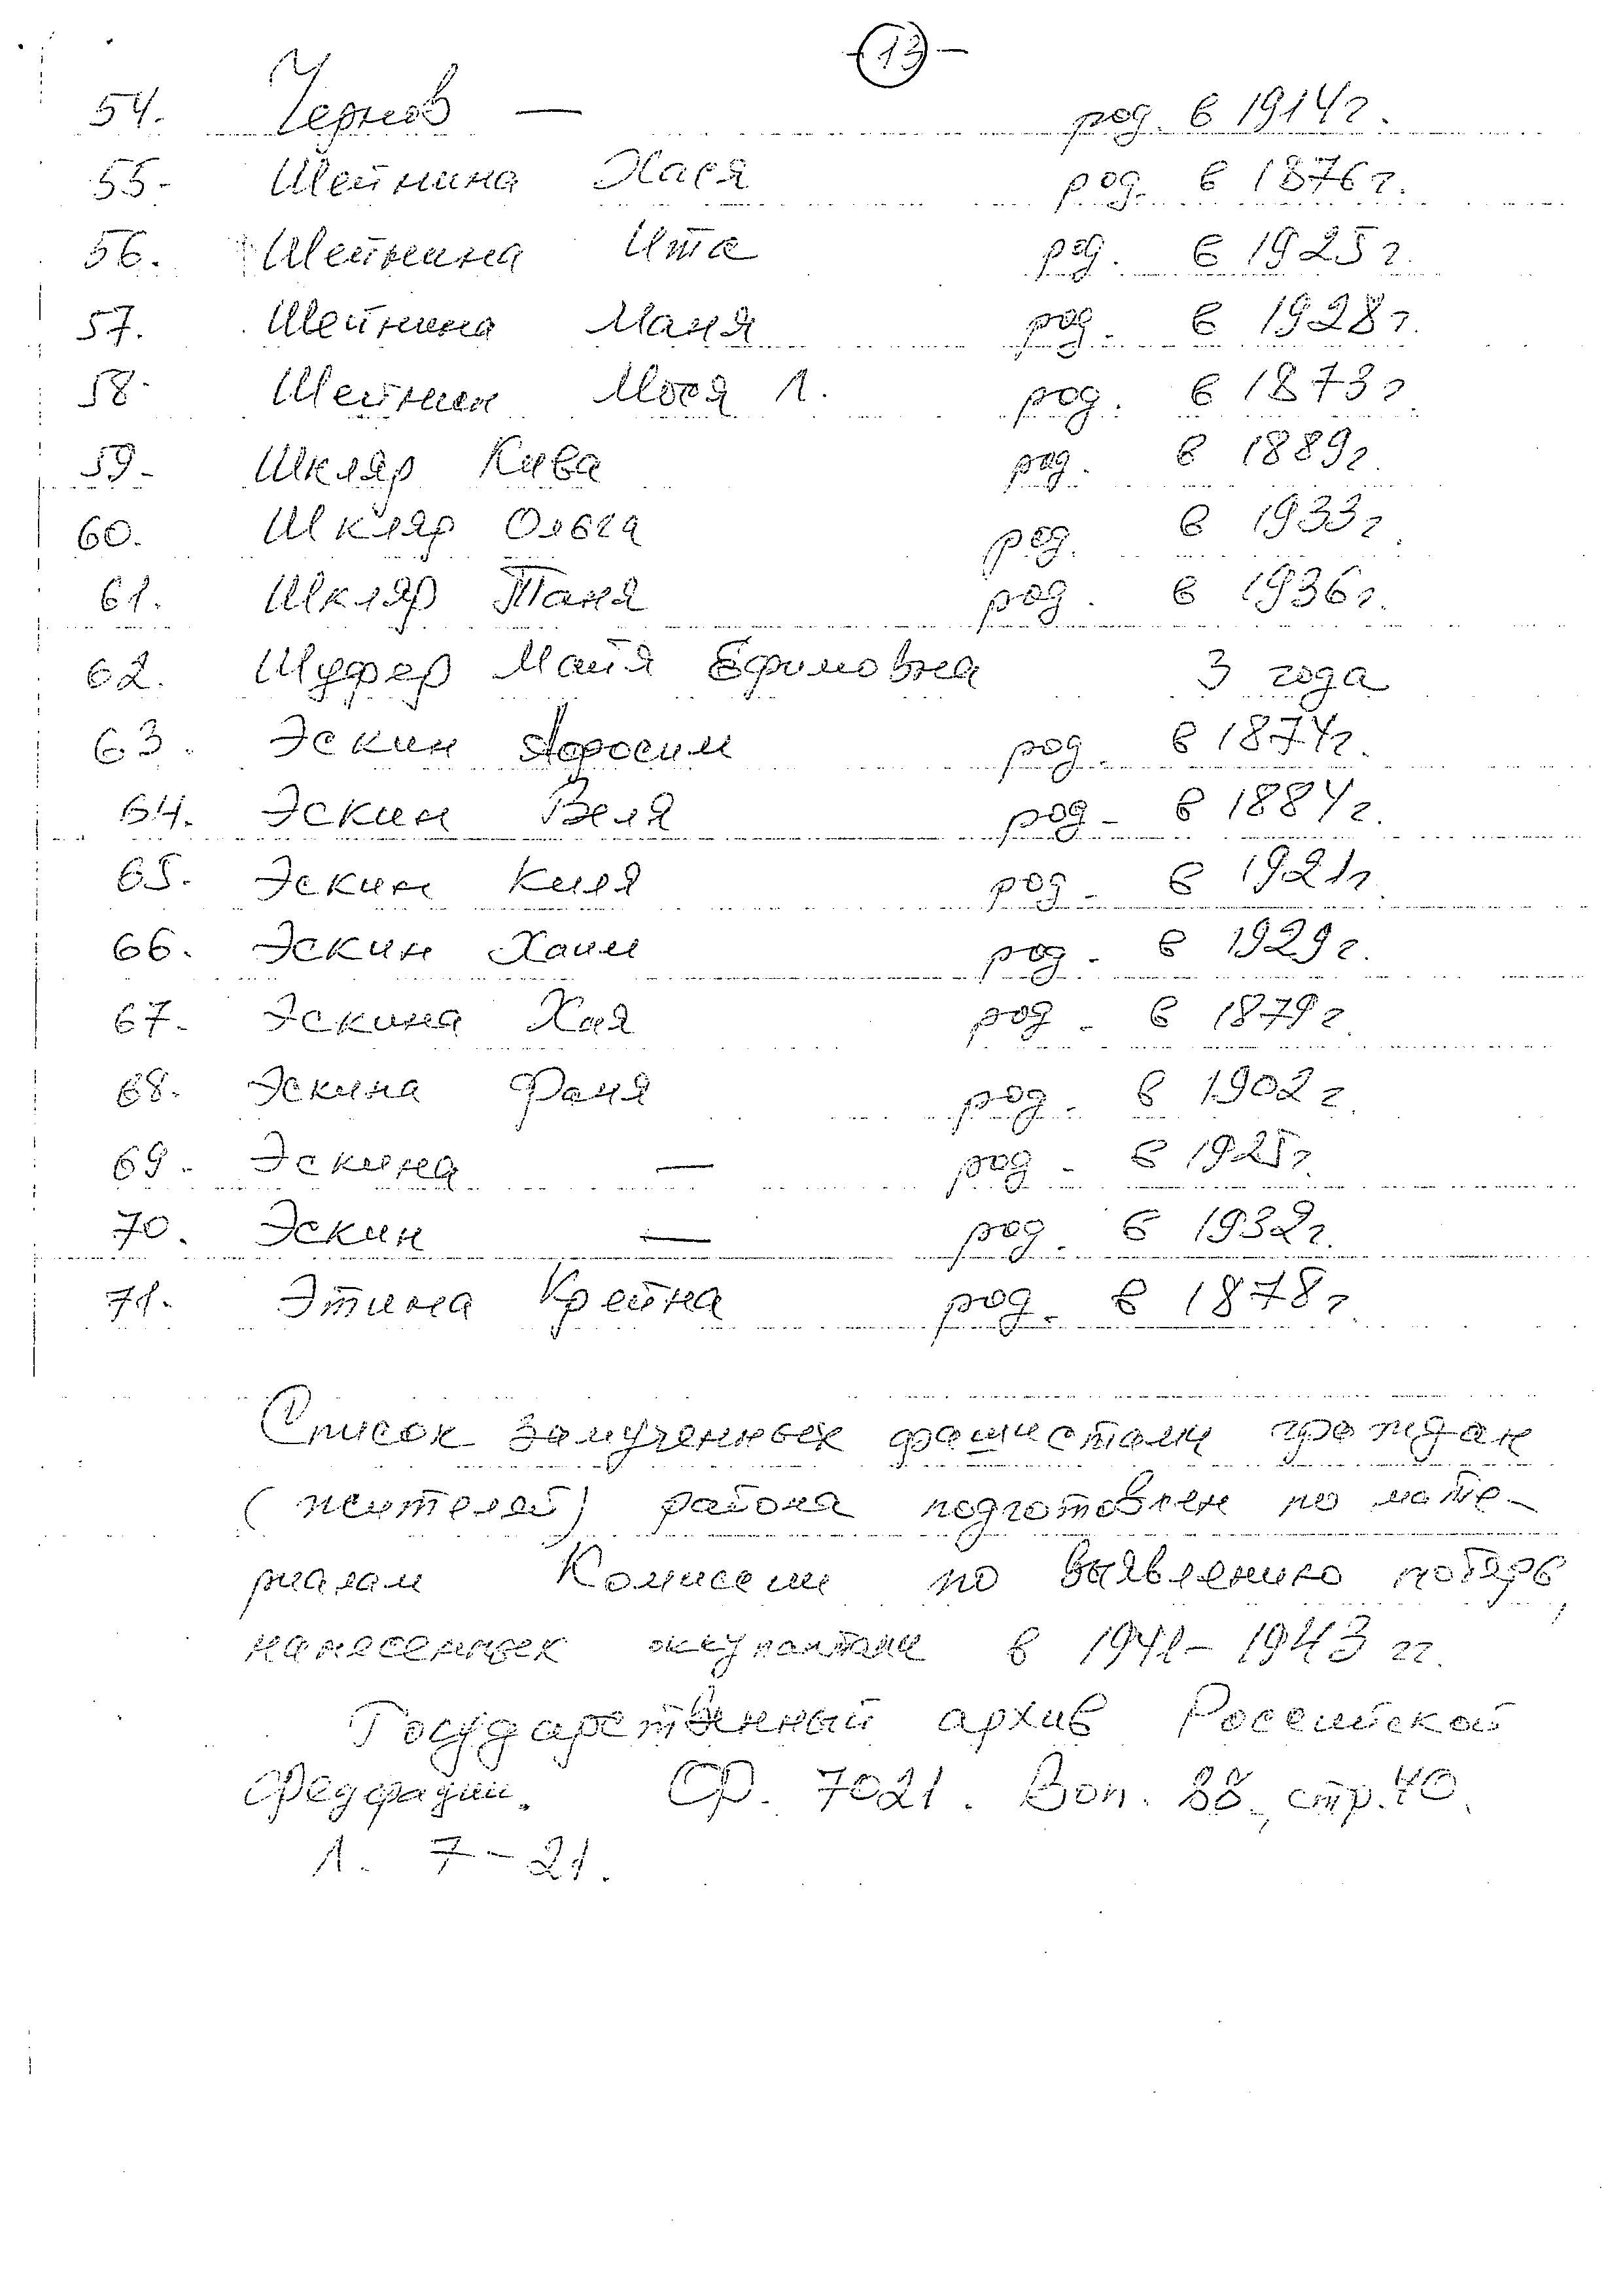 - 13 -
54. Чернов — род. в 1914 г.
55. Шейнина Хася род. в 1876 г.
56. Шейнина Ита род. в 1925 г.
57. Шейнина Маня род. в 1928 г.
58. Шейнин Мося Л. род. в 1873 г.
59. Шкляр Кива род. в 1889 г.
60. Шкляр Ольга род. в 1933 г.
61. Шкляр Таня род. в 1936 г.
62. Шуфер Майя Ефимовна 3 года
63. Эскин род. в 1874 г.
64. Эскин Веля род. в 1884 г.
65. Эскин Киля род. в 1921 г.
66. Эскин Хаим род. в 1929 г.
67. Эскина Хая род. в 1879 г.
68. Эскина Фаня род. в 1902 г.
69. Эскина — род. в 1925 г.
70. Эскин — род. в 1932 г.
71. Этина Крейна род. в 1878 г.
Список замученных фашистами граждан
(жителей) района подготовлен по мате-
риалам Комиссии по выявлению потерь,
нанесенных оккупантами в 1941-1943 гг.
Государственный архив Российской
Федерации. Ф. 7021. Воп. 88, стр. 40.
Л. 7-21.